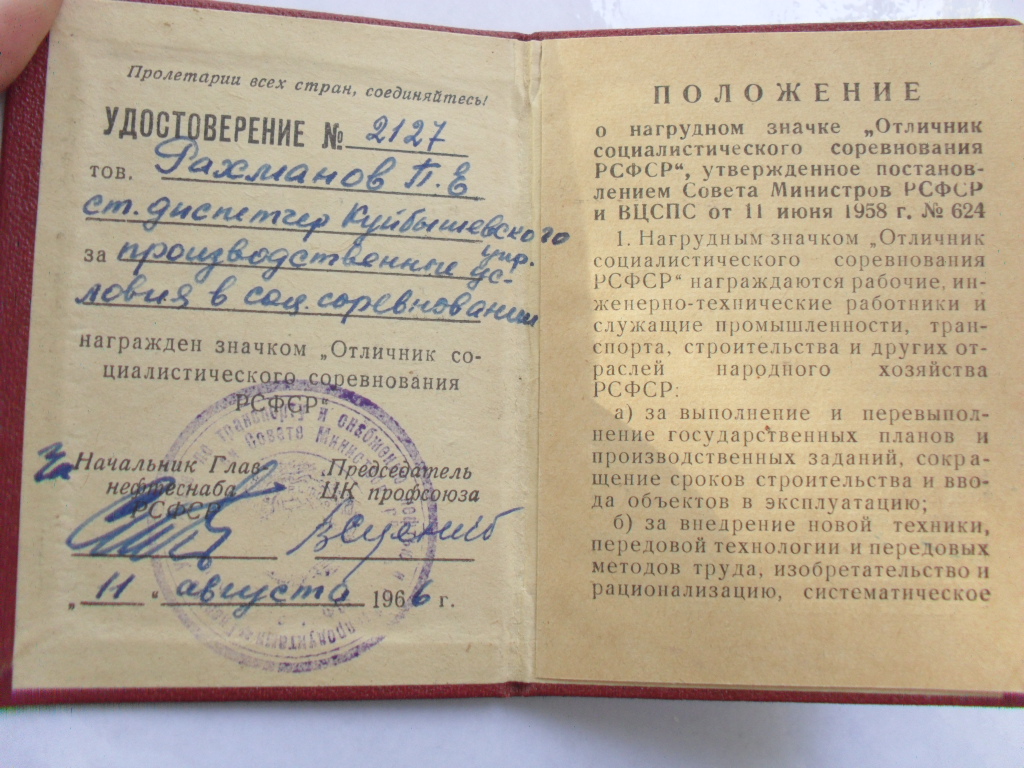 Пролетарии всех стран, соединяйтесь!
УДОСТОВЕРЕНИЕ № 2127
тов. Рахманов П.Е
ст. диспетчер Куйбышевского
упр.
за производственные ус-
ловия в соц. соревновании
награжден значком „Отличник со-
циалистического соревнования
РСФСР“
За Начальник Глав-
нефтеснаба
РСФСР
Председатель
ЦК профсоюза
„ 11 “ августа 1966 г.
ПОЛОЖЕНИЕ
о нагрудном значке „Отличник
социалистического соревнования
РСФСР“, утвержденное постанов-
лением Совета Министров РСФСР
и ВЦСПС от 11 июня 1958 г. № 624
1. Нагрудным значком „Отличник
социалистического соревнования
РСФСР“ награждаются рабочие, ин-
женерно-технические работники и
служащие промышленности, тран-
спорта, строительства и других от-
раслей народного хозяйства
РСФСР:
а) за выполнение и перевыпол-
нение государственных планов и
производственных заданий, сокра-
щение сроков строительства и вво-
да объектов в эксплуатацию;
б) за внедрение новой техники,
передовой технологии и передовых
методов труда, изобретательство и
рационализацию, систематическое